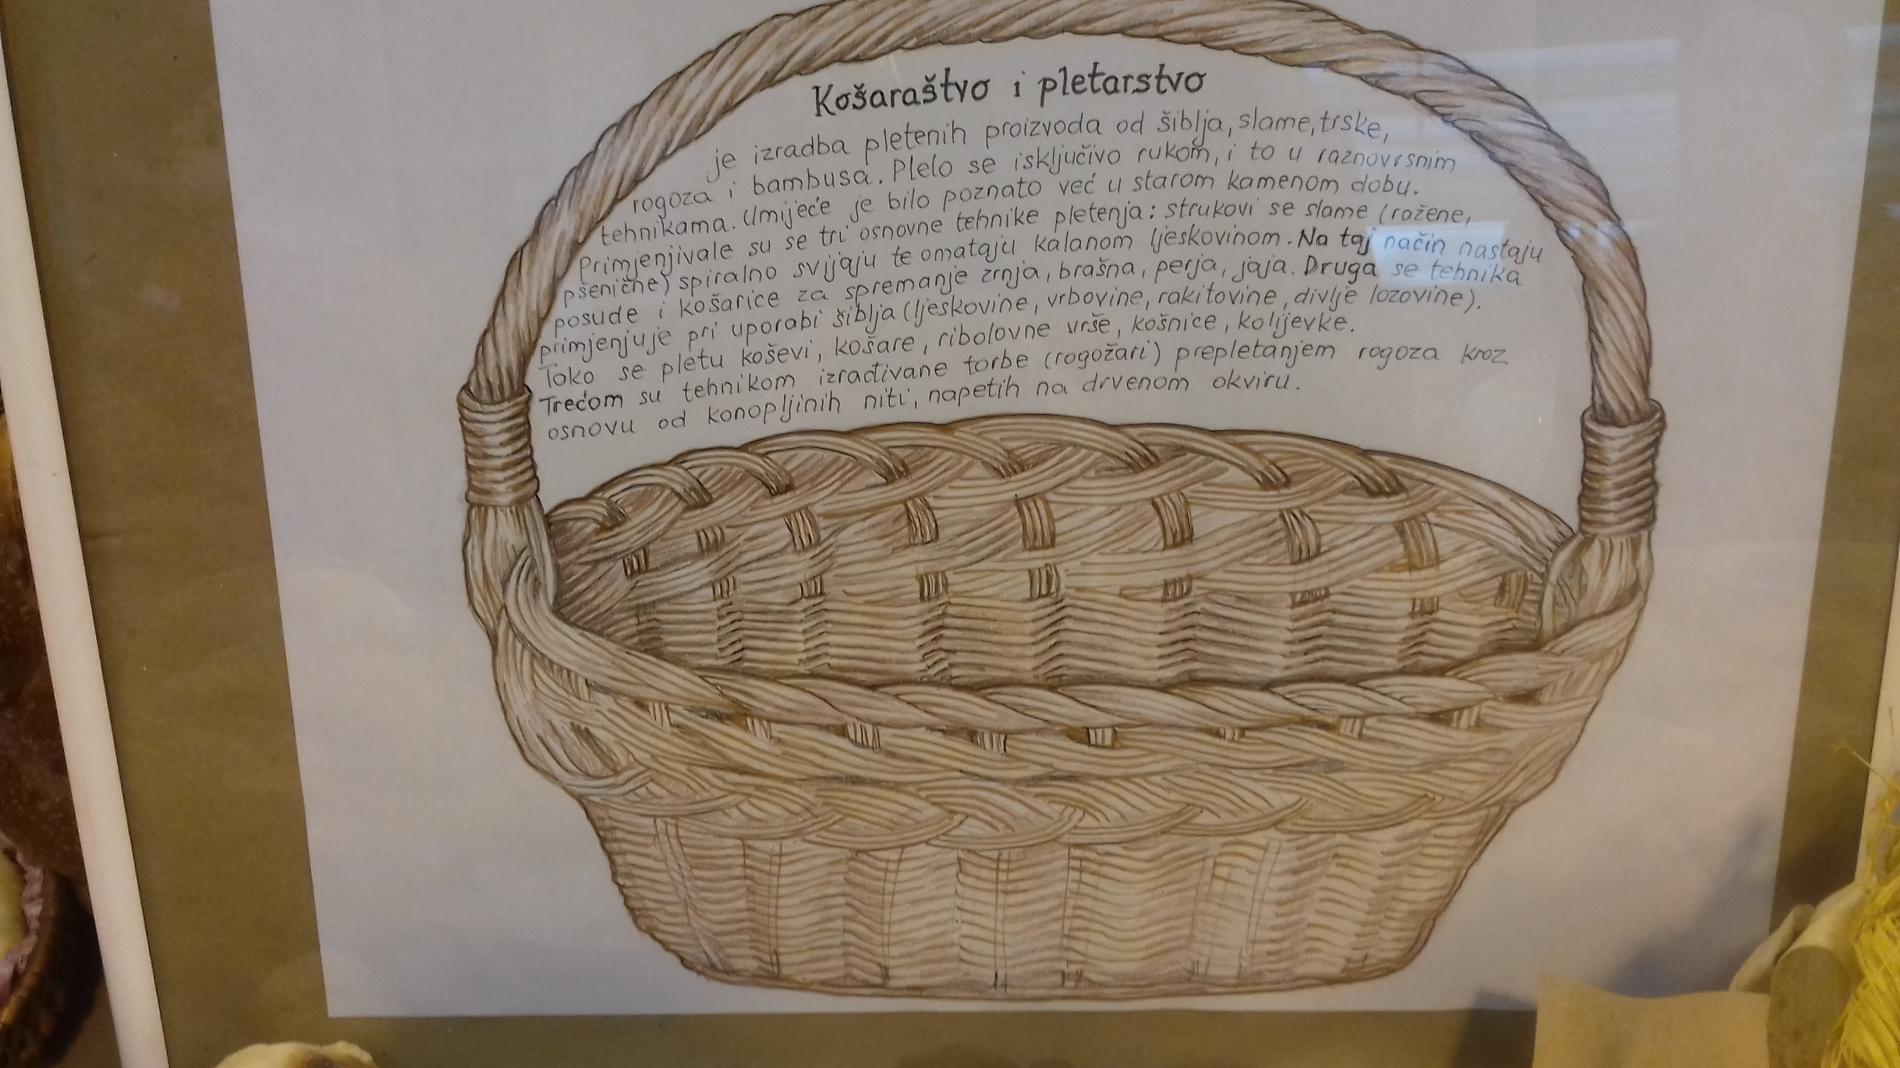 Košaraštvo i pletarstvo
je izradba pletenih proizvoda od šiblja, slame, trske,
rogoza i bambusa. Plelo se isključivo rukom, i to u raznovrsnim
tehnikama. Umijeće je bilo poznato već u starom kamenom dobu.
Primjenjivale su se tri osnovne tehnike pletenja: strukovi se slame (ražene,
pšenične) spiralno svijaju te omataju kalanom ljeskovinom. Na taj način nastaju
posude i košarice za spremanje zrnja, brašna, perja, jaja. Druga se tehnika
primjenjuje pri uporabi šiblja (ljeskovine, vrbovine, rakitovine, divlje lozovine).
Tako se pletu koševi, košare, ribolovne vrše, košnice, kolijevke.
Trećom su tehnikom izrađivane torbe (rogožari) prepletanjem rogoza kroz
osnovu od konopljinih niti, napetih na drvenom okviru.